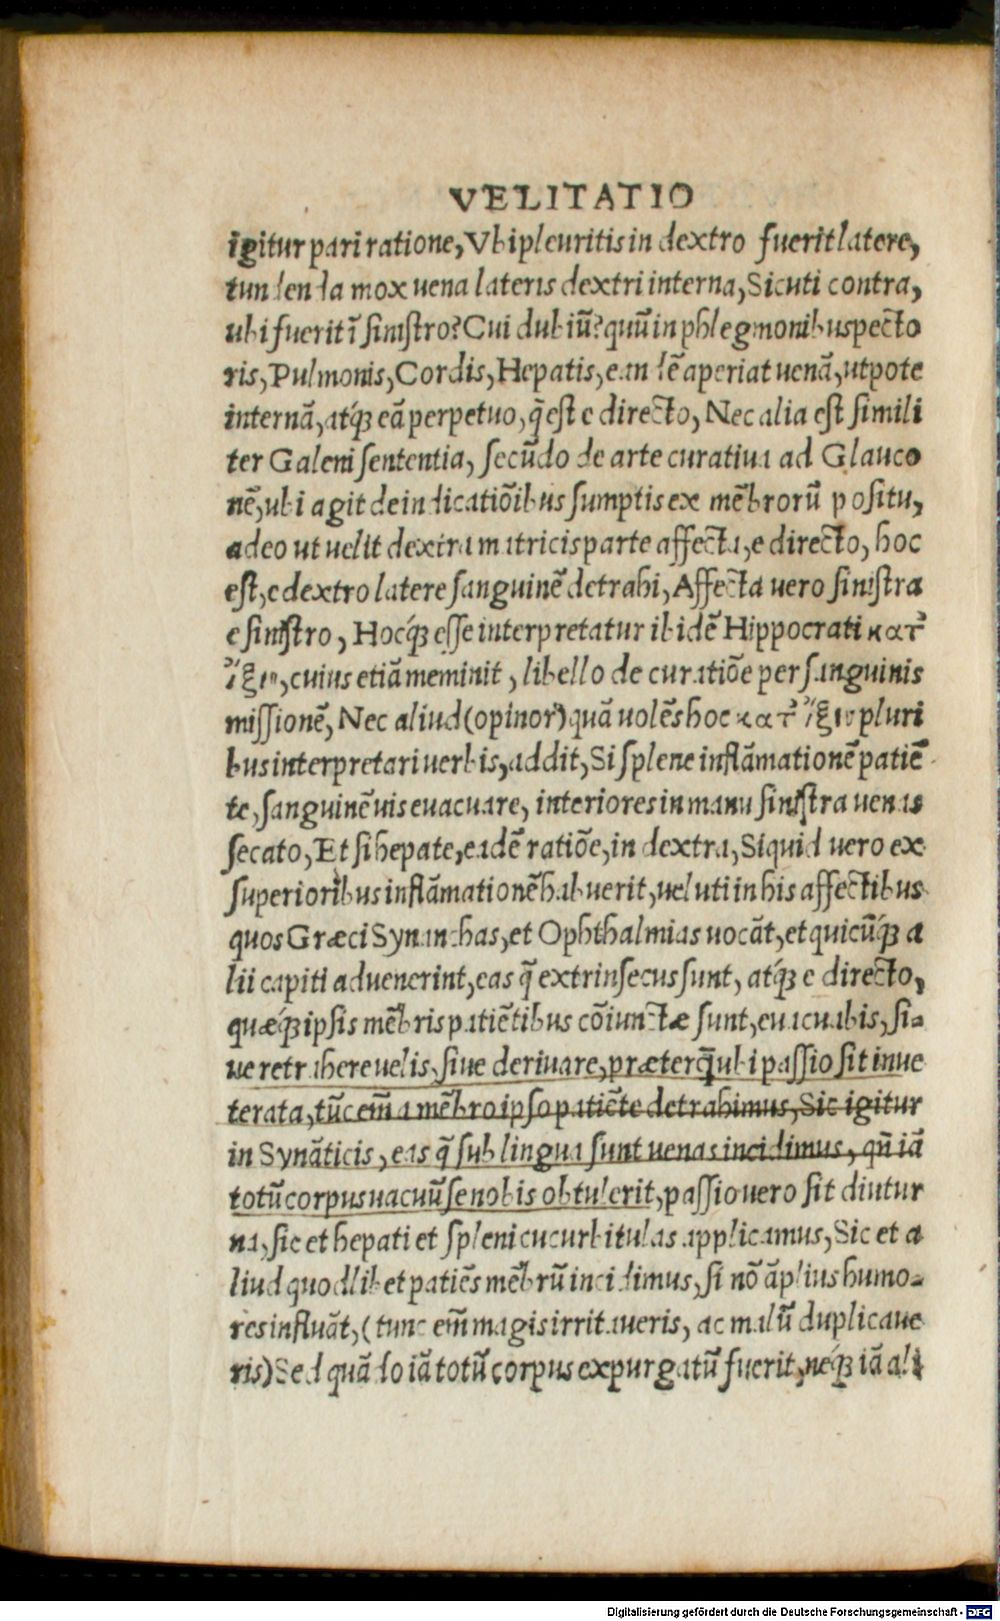 VELITATIO
igitur pari ratione, Vbi pleuritis in dextro fuerit latere,
tundenda mox uena lateris dextri interna, Sicuti contra,
ubi fuerit ī sinistro? Cui dubiū? quū in phlegmonibus pecto
ris, Pulmonis, Cordis, Hepatis, eandē aperiat uenā, utpote
internā, atq́ꝫ eā perpetuo, q̄ est e directo, Nec alia est simili
ter Galeni sententia, secūdo de arte curatiua ad Glauco
nē, ubi agit de indicatiōibus sumptis ex mēbrorū positu,
adeo ut uelit dextra matricis parte affecta, e directo, hoc
est, e dextro latere sanguinē detrahi, Affecta uero sinistra
e sinistro, Hocq́ꝫ esse interpretatur ibidē Hippocrati κατ᾽
ἴξιν, cuius etiā meminit, libello de curatiōe per sanguinis
missionē, Nec aliud (opinor) quā uolēs hoc κατ᾽ ἴξιν pluri
bus interpretari uerbis, addit, Si splene inflāmationē patiē
te, sanguinē uis euacuare, interiores in manu sinistra uenas
secato, Et si hepate, eadē ratiōe, in dextra, Siquid uero ex
superioribus inflāmationē habuerit, ueluti in his affectibus
quos Græci Synanchas, et Ophthalmias uocāt, et quicūq́ꝫ a
lii capiti aduenerint, eas q̄ extrinsecus sunt, atq́ꝫ e directo,
quæq́ꝫ ipsis mēbris patiētibus cōiunctæ sunt, euacuabis, si⸗
ue retrahere uelis, siue deriuare, præterq̄ ubi passio sit inue
terata, tūc em̄ a mēbro ipso patiēte detrahimus, Sic igitur
in Synāticis, eas q̄ sub lingua sunt uenas incidimus, qn̄ iā
totū corpus uacuū se nobis obtulerit, passio uero sit diutur
na, sic et hepati et spleni cucurbitulas applicamus, Sic et a
liud quodlibet patiēs mēbrū incidimus, si nō āplius humo⸗
res influāt, (tunc em̄ magis irritaueris, ac malū duplicaue
ris) Sed quādo iā totū corpus expurgatū fuerit, neq́ꝫ iā ali
Digitalisierung gefördert durch die Deutsche Forschungsgemeinschaft - DFG